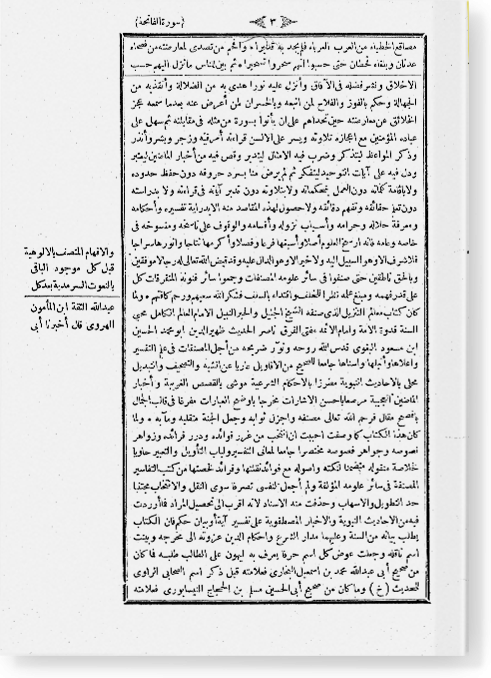 ﴿سورة الفاتحة﴾
﴿ ٣ ﴾
مصاقع الخطباء من العرب العرباء فلم يجد به قديرا وأفحم من تصدى لمعارضته من فصحاء
عدنان وبلغاء قحطان حتى حسبوا أنهم سحروا تسحيرا ثم بين للناس ما نزل اليهم حسب
الاخلاق ونشر فضله فى الآفاق وأنزل عليه نورا هدى به من الضلالة وأنقذ به من
الجهالة وحكم بالفوز والفلاح لمن اتبعه وبالخسران لمن أعرض عنه بعد ما سمعه عجز
الخلائق عن معارضته حين تحداهم على أن يأتوا بسورة من مثله فى مقابلته ثم سهل على
عباده المؤمنين مع اعجازه تلاوته ويسر على الالسن قراءته أمر فيه وزجر وبشر وأنذر
وذكر المواعظ ليتذكر وضرب فيه الامثال ليتدبر وقص فيه من أخبار الماضين ليعتبر
ودل فيه على آيات التوحيد ليتفكر ثم لم يرض منا بسرد حروفه دون حفظ حدوده
ولا باقامة كلماته دون العمل بمحكماته ولا بتلاوته دون تدبر آياته فى قراءته ولا بدراسته
دون تعلم حقائقه وتفهم دقائقه ولا حصول لهذه المقاصد منه الا بدراية تفسيره وأحكامه
ومعرفة حلاله وحرامه وأسباب نزوله وأقسامه والوقوف على ناسخه ومنسوخه فى
خاصه وعامه فانه أرسخ العلوم أصلا وأسبغها فرعا وفصلا وأكرمها نتاجا وأنورها سراجا
فلا شرف الا وهو السبيل اليه ولا خير الا وهو الدال عليه وقد قيض الله تعالى له رجالا موفقين
وبالحق ناطقين حتى صنفوا فى سائر علومه المصنفات وجمعوا سائر فنونه المتفرقات كل
على قدر فهمه ومبلغ علمه نظرا للخلف واقتداء بالسلف فشكر الله سعيهم ورحم كافتهم • ولما
كان كتاب معالم التنزيل الذى صنفه الشيخ الجليل والحبر النبيل الامام العالم الكامل محيى
السنة قدوة الامة وامام الائمة مفتى الفرق ناصر الحديث ظهير الدين أبو محمد الحسين
ابن مسعود البغوى قدس الله روحه ونور ضريحه من أجل المصنفات فى علم التفسير
وأعلاها وأنبلها وأسناها جامعا للصحيح من الاقاويل عاريا عن الشبه والتصحيف والتبديل
محلى بالاحاديث النبوية مطرزا بالاحكام الشرعية موشى بالقصص الغريبة وأخبار
الماضين العجيبة مرصعا باحسن الاشارات مخرجا باوضح العبارات مفرغا فى قالب الجمال
بافصح مقال فرحم الله تعالى مصنفه وأجزل ثوابه وجعل الجنة متقلبه ومآبه • ولما
كان هذا الكتاب كما وصفت أحببت أن أنتخب من غرر فوائده ودرر فرائده وزواهر
نصوصه وجواهر فصوصه مختصرا جامعا لمعانى التفسير ولباب التأويل والتعبير حاويا
خلاصة منقوله متضمنا لنكته وأصوله مع فوائد نقلتها وفرائد لخصتها من كتب التفاسير
المصنفة فى سائر علومه المؤلفة ولم أجعل لنفسى تصرفا سوى النقل والانتخاب مجتنبا
حد التطويل والاسهاب وحذفت منه الاسناد لانه أقرب الى تحصيل المراد فما أوردت
فيه من الاحاديث النبوية والاخبار المصطفوية على تفسير آية أو بيان حكم فان الكتاب
يطلب بيانه من السنة وعليهما مدار الشرع وأحكام الدين عزوته الى مخرجه وبينت
اسم ناقله وجعلت عوض كل اسم حرفا يعرف به ليهون على الطالب طلبه فما كان
من صحيح أبى عبدالله محمد بن اسمعيل البخارى فعلامته قبل ذكر اسم الصحابى الراوى
للحديث (خ) وما كان من صحيح أبى الحسين مسلم بن الحجاج النيسابورى فعلامته
والافهام المتصف بالالوهية
قبل كل موجود الباقى
بالنعوت السرمدية بعد كل
عبدالله الثقة ابن المأمون
الهروى قال أخبرنا أبى